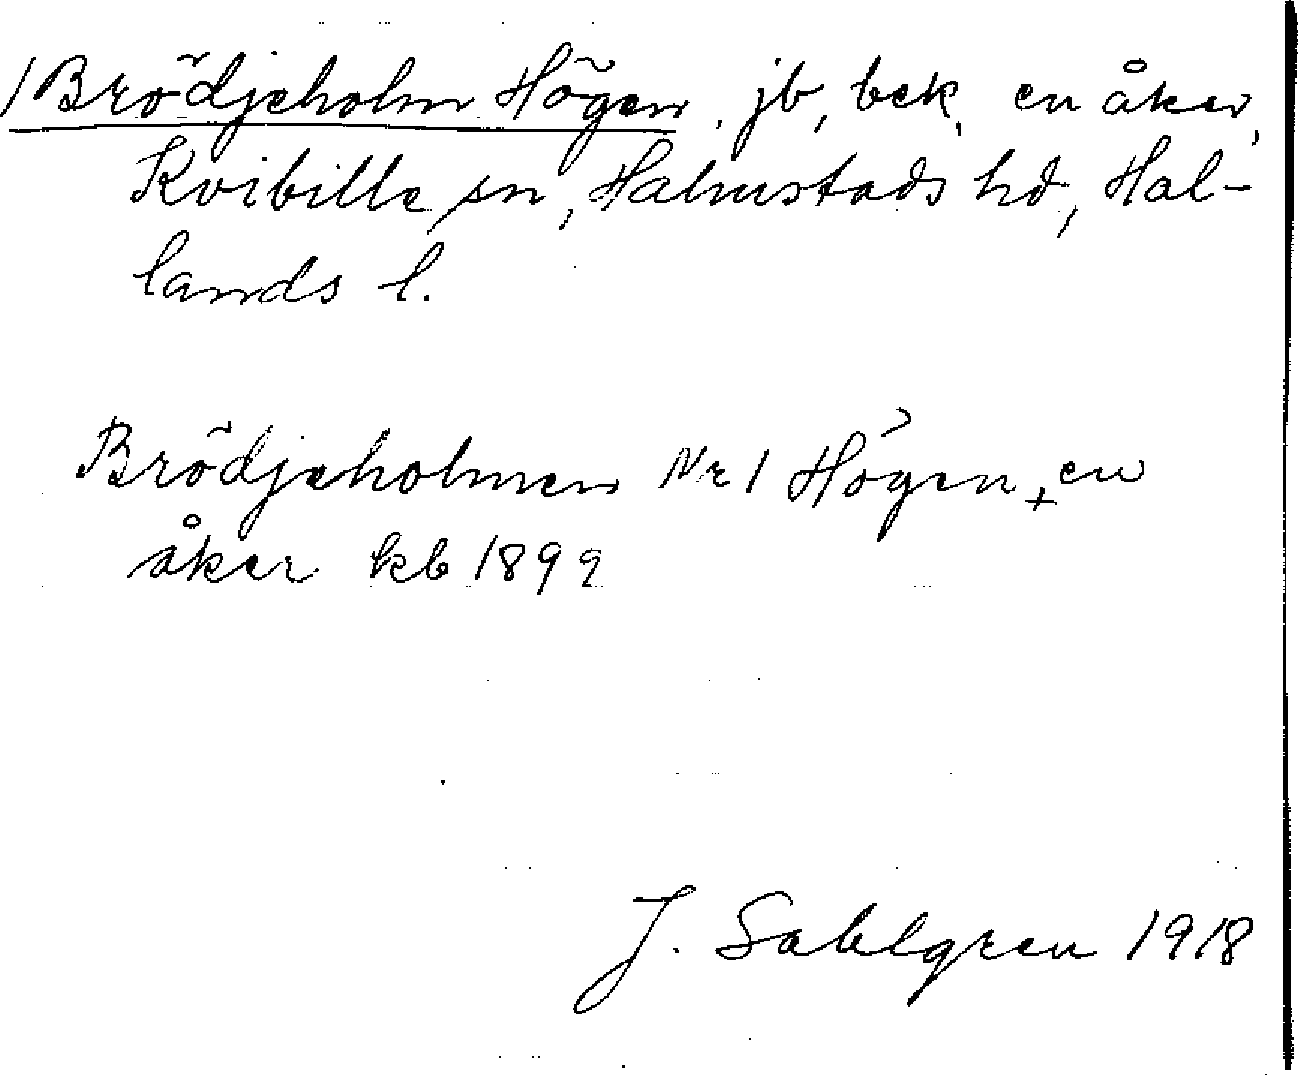 /Brödjeholm Högen, jb, bek, en åker,
Kvibille sn, Halmstads hd, Hal-
lands l.
Brödjeholmen Nr 1 Högen + en
åker kb 1899
J. Sahlgren 1918